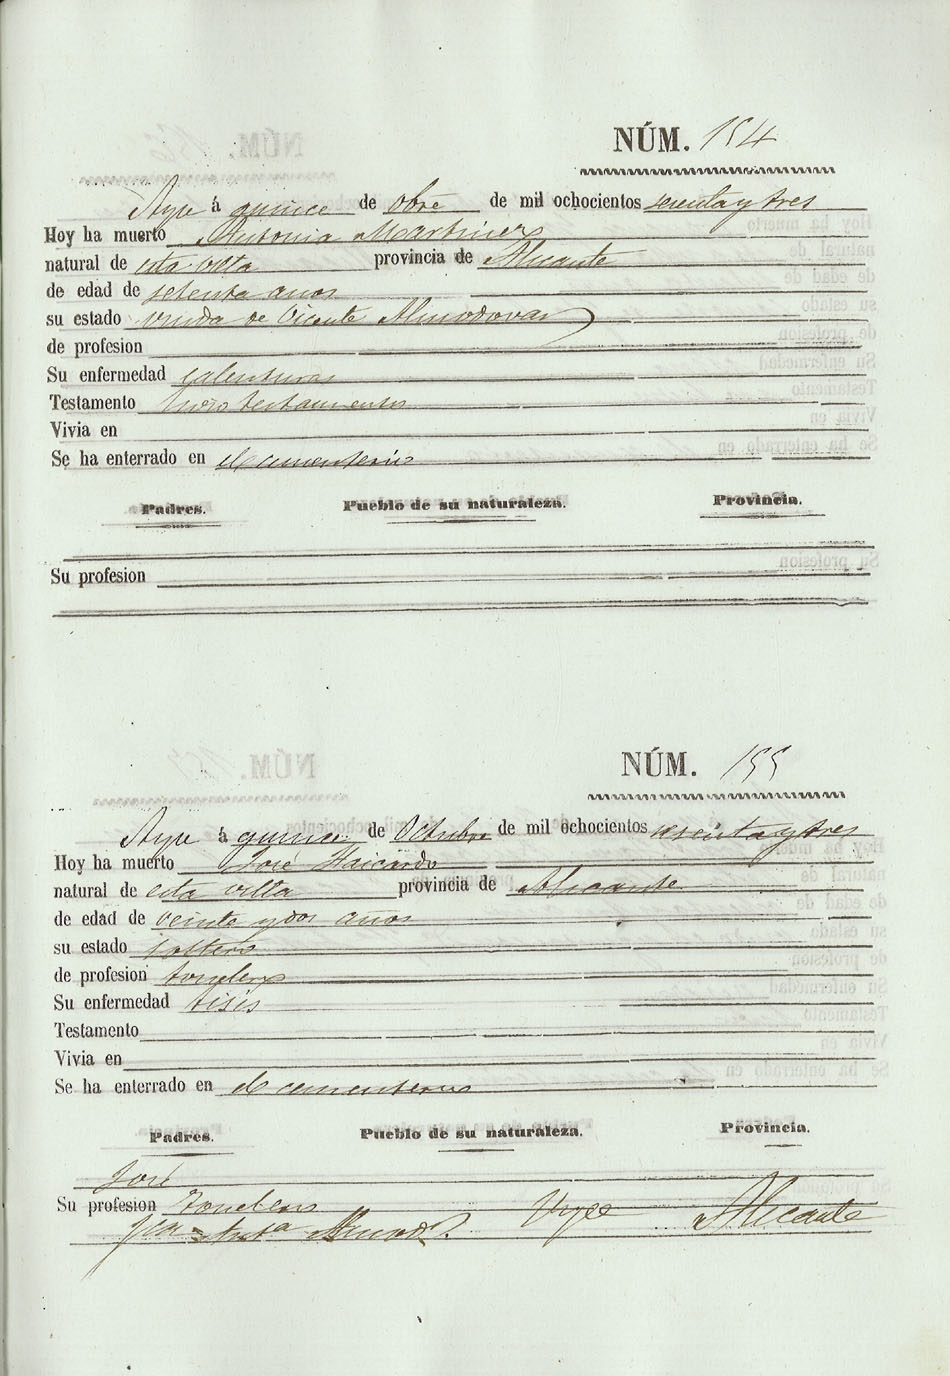 NÚM. 154
Aspe á quince de Obre de mil ochocientos sesenta y tres
Hoy ha muerto Antonia Martinez
natural de esta villa provincia de Alicante
de edad de setenta anos
su estado viuda de Vicente Almodovar
de profesion
Su enfermedad calenturas
Testamento hizo testamento
Vivia en
Se ha enterrado en el cementerio
Padres. Pueblo de su naturaleza. Provincia.
Su profesion
NÚM. 155
Aspe á quince de Octubre de mil ochocientos sesenta y tres
Hoy ha muerto José
natural de esta villa provincia de Alicante
de edad de veinte y dos anos
su estado soltero
de profesion tonelero
Su enfermedad tisis
Testamento
Vivia en
Se ha enterrado en el cementerio
Padres. Pueblo de su naturaleza. Provincia.
José
Su profesion Tonelero Alicante